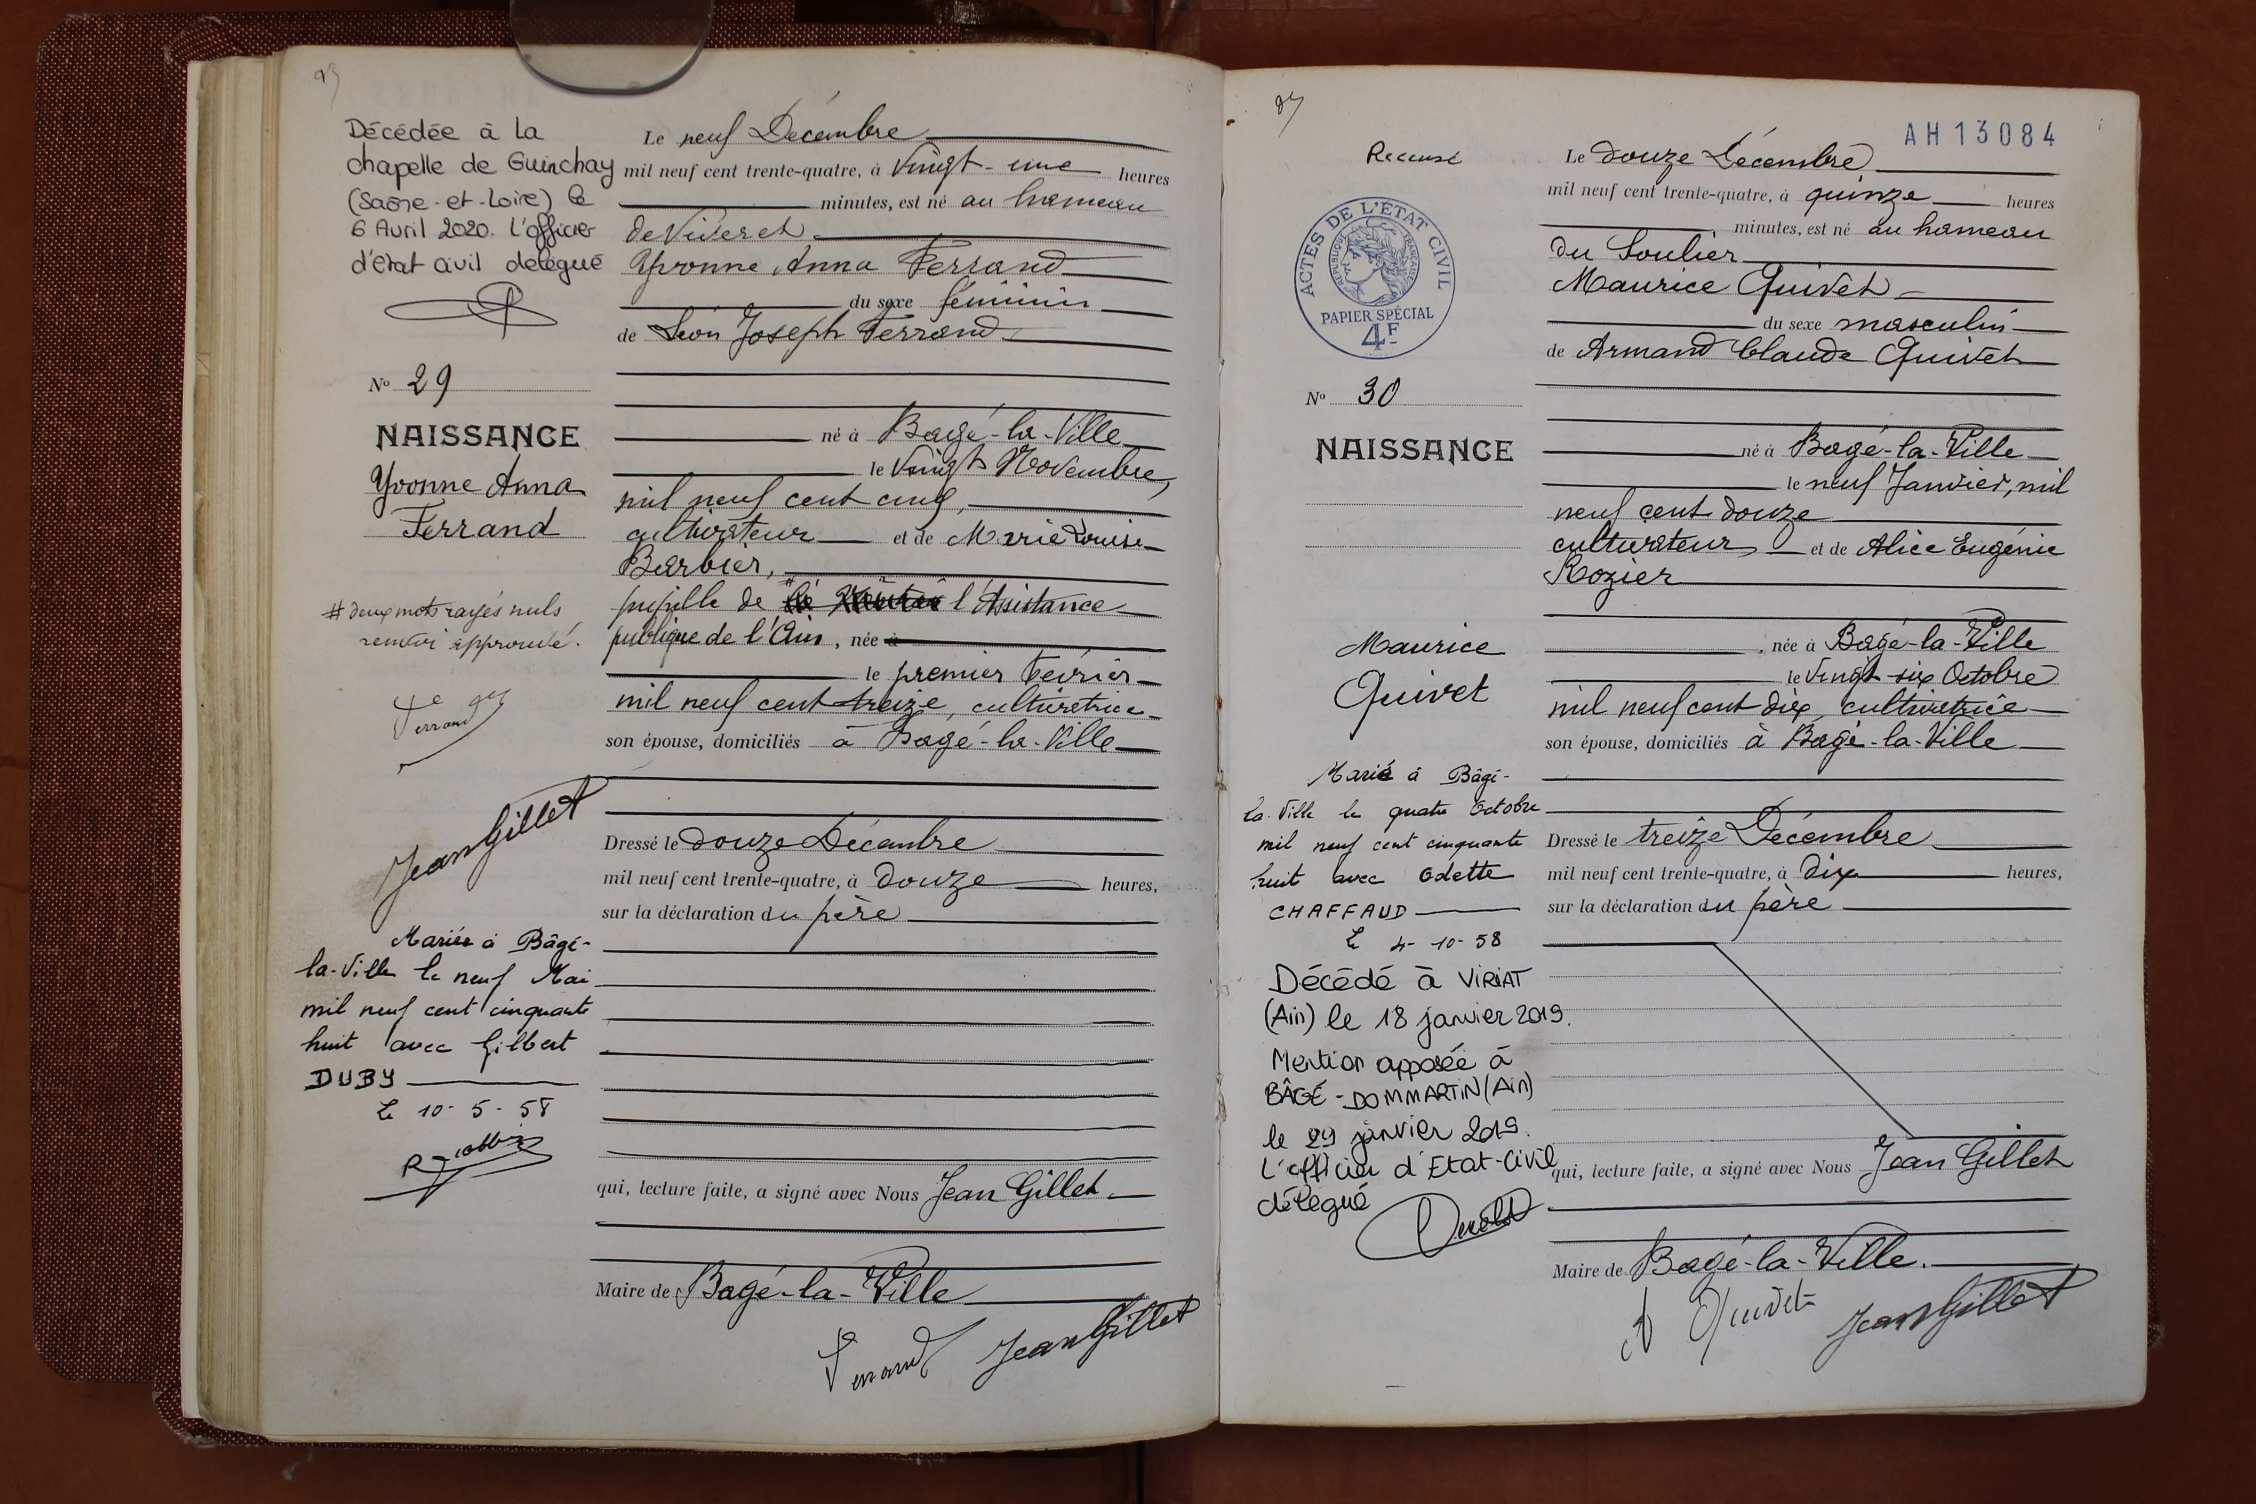 Décédée à La
chapelle de Guinchay
(Saône-et-Loire) le
6 Avril 2020. L'officier
d'Etat civil délégué
No 29
NAISSANCE
Yvonne Anna
Ferrand
# deux mots rayés nuls
renvoi approuvé.
Ferrand
Jean Gillet
Mariée à Bâgé-
la-Ville le neuf Mai
mil neuf cent cinquante
huit avec Gilbert
DUBY
Le 10-5-58
Le neuf Décembre
mil neuf cent trente-quatre, à vingt-une heures
minutes, est né au hameau
de Viveret
Yvonne Anna Ferrand
du sexe féminin
de Léon Joseph Ferrand
né à Bagé-la-Ville
le vingt Novembre,
mil neuf cent cinq,
cultivateur et de Marie Louise
Barbier,
pupille de l'Assistance
publique de l'Ain, née à
le premier Février
mil neuf cent treize, cultivatrice
son épouse, domiciliés à Bagé-la-Ville
Dressé le douze Décembre
mil neuf cent trente-quatre, à douze heures,
sur la déclaration du père
qui, lecture faite, a signé avec Nous Jean Gillet
Maire de Bagé-la-Ville
Ferrand Jean Gillet
AH 13084
Recensé
ACTES DE L'ÉTAT CIVIL
RÉPUBLIQUE FRANÇAISE
PAPIER SPÉCIAL
4F
No 30
NAISSANCE
Maurice
Quivet
Marié à Bâgé-
la-Ville le quatre Octobre
mil neuf cent cinquante
huit avec Odette
CHAFFAUD
Le 4-10-58
Décédé à VIRIAT
(Ain) le 18 janvier 2019.
Mention apposée à
BÂGÉ-DOMMARTIN (Ain)
le 29 janvier 2019.
L'officier d'Etat-Civil
délégué
Le douze Décembre
mil neuf cent trente-quatre, à quinze heures
minutes, est né au hameau
du Soulier
Maurice Quivet
du sexe masculin
de Armand Claude Quivet
né à Bagé-la-Ville
le neuf Janvier, mil
neuf cent douze
cultivateur et de Alice Eugénie
Rozier
, née à Bagé-la-Ville
le vingt-six Octobre
mil neuf cent dix, cultivatrice
son épouse, domiciliés à Bagé-la-Ville
Dressé le treize Décembre
mil neuf cent trente-quatre, à dix heures,
sur la déclaration du père
qui, lecture faite, a signé avec Nous Jean Gillet
Maire de Bagé-la-Ville.
A Quivet Jean Gillet